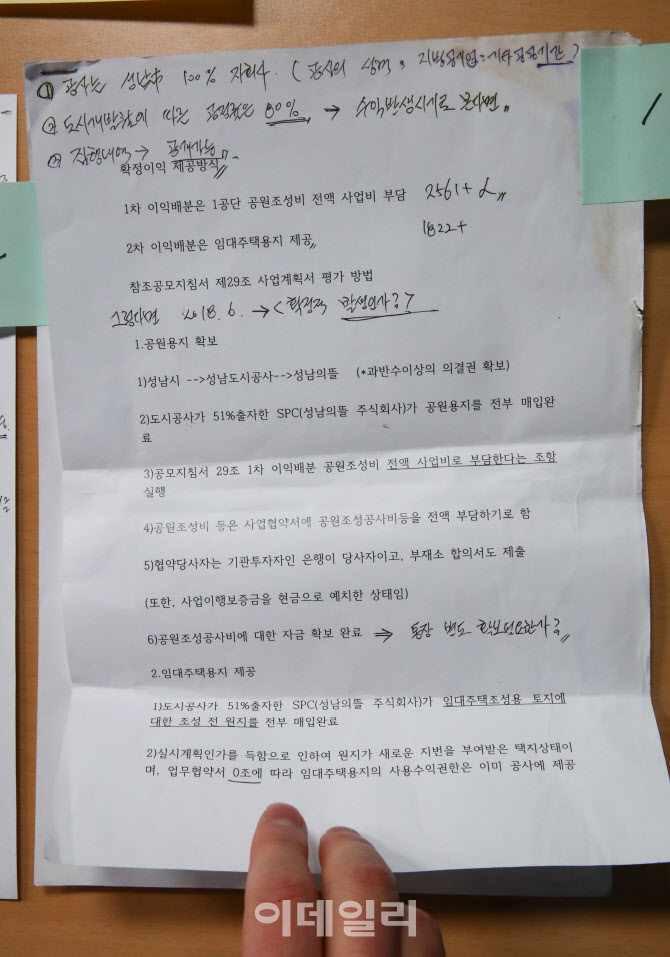 ① 공사는 성남市 100% 자회사 (공사의 성격: 지방공기업 = 기간?)
② 도시개발 따른 공정률은 80% → 수익발생시기로 본다면〃
③ 집행내역 → 공개가능〃
확정이익 제공방식〃
1차 이익배분은 1공단 공원조성비 전액 사업비 부담 2561+α〃
1822+
2차 이익배분은 임대주택용지 제공〃
참조공모지침서 제29조 사업계획서 평가 방법
그렇다면 2018. 6. → (확정적 발생인가?)
1.공원용지 확보
1)성남시 -->성남도시공사-->성남의뜰 (*과반수이상의 의결권 확보)
2)도시공사가 51%출자한 SPC(성남의뜰 주식회사)가 공원용지를 전부 매입완
료
3)공모지침서 29조 1차 이익배분 공원조성비 전액 사업비로 부담한다는 조항
실행
4)공원조성비 등은 사업협약서에 공원조성공사비등을 전액 부담하기로 함
5)협약당사자는 기관투자자인 은행이 당사자이고, 부재소 합의서도 제출
(또한, 사업이행보증금을 현금으로 예치한 상태임)
6)공원조성공사비에 대한 자금 확보 완료 ⇒ 통장 별도 확보필요한가?〃
2.임대주택용지 제공
1)도시공사가 51%출자한 SPC(성남의뜰 주식회사)가 임대주택조성용 토지에
대한 조성 전 원지를 전부 매입완료
2)실시계획인가를 득함으로 인하여 원지가 새로운 지번을 부여받은 택지상태이
며, 업무협약서 0조에 따라 임대주택용지의 사용수익권한은 이미 공사에 제공
이데일리